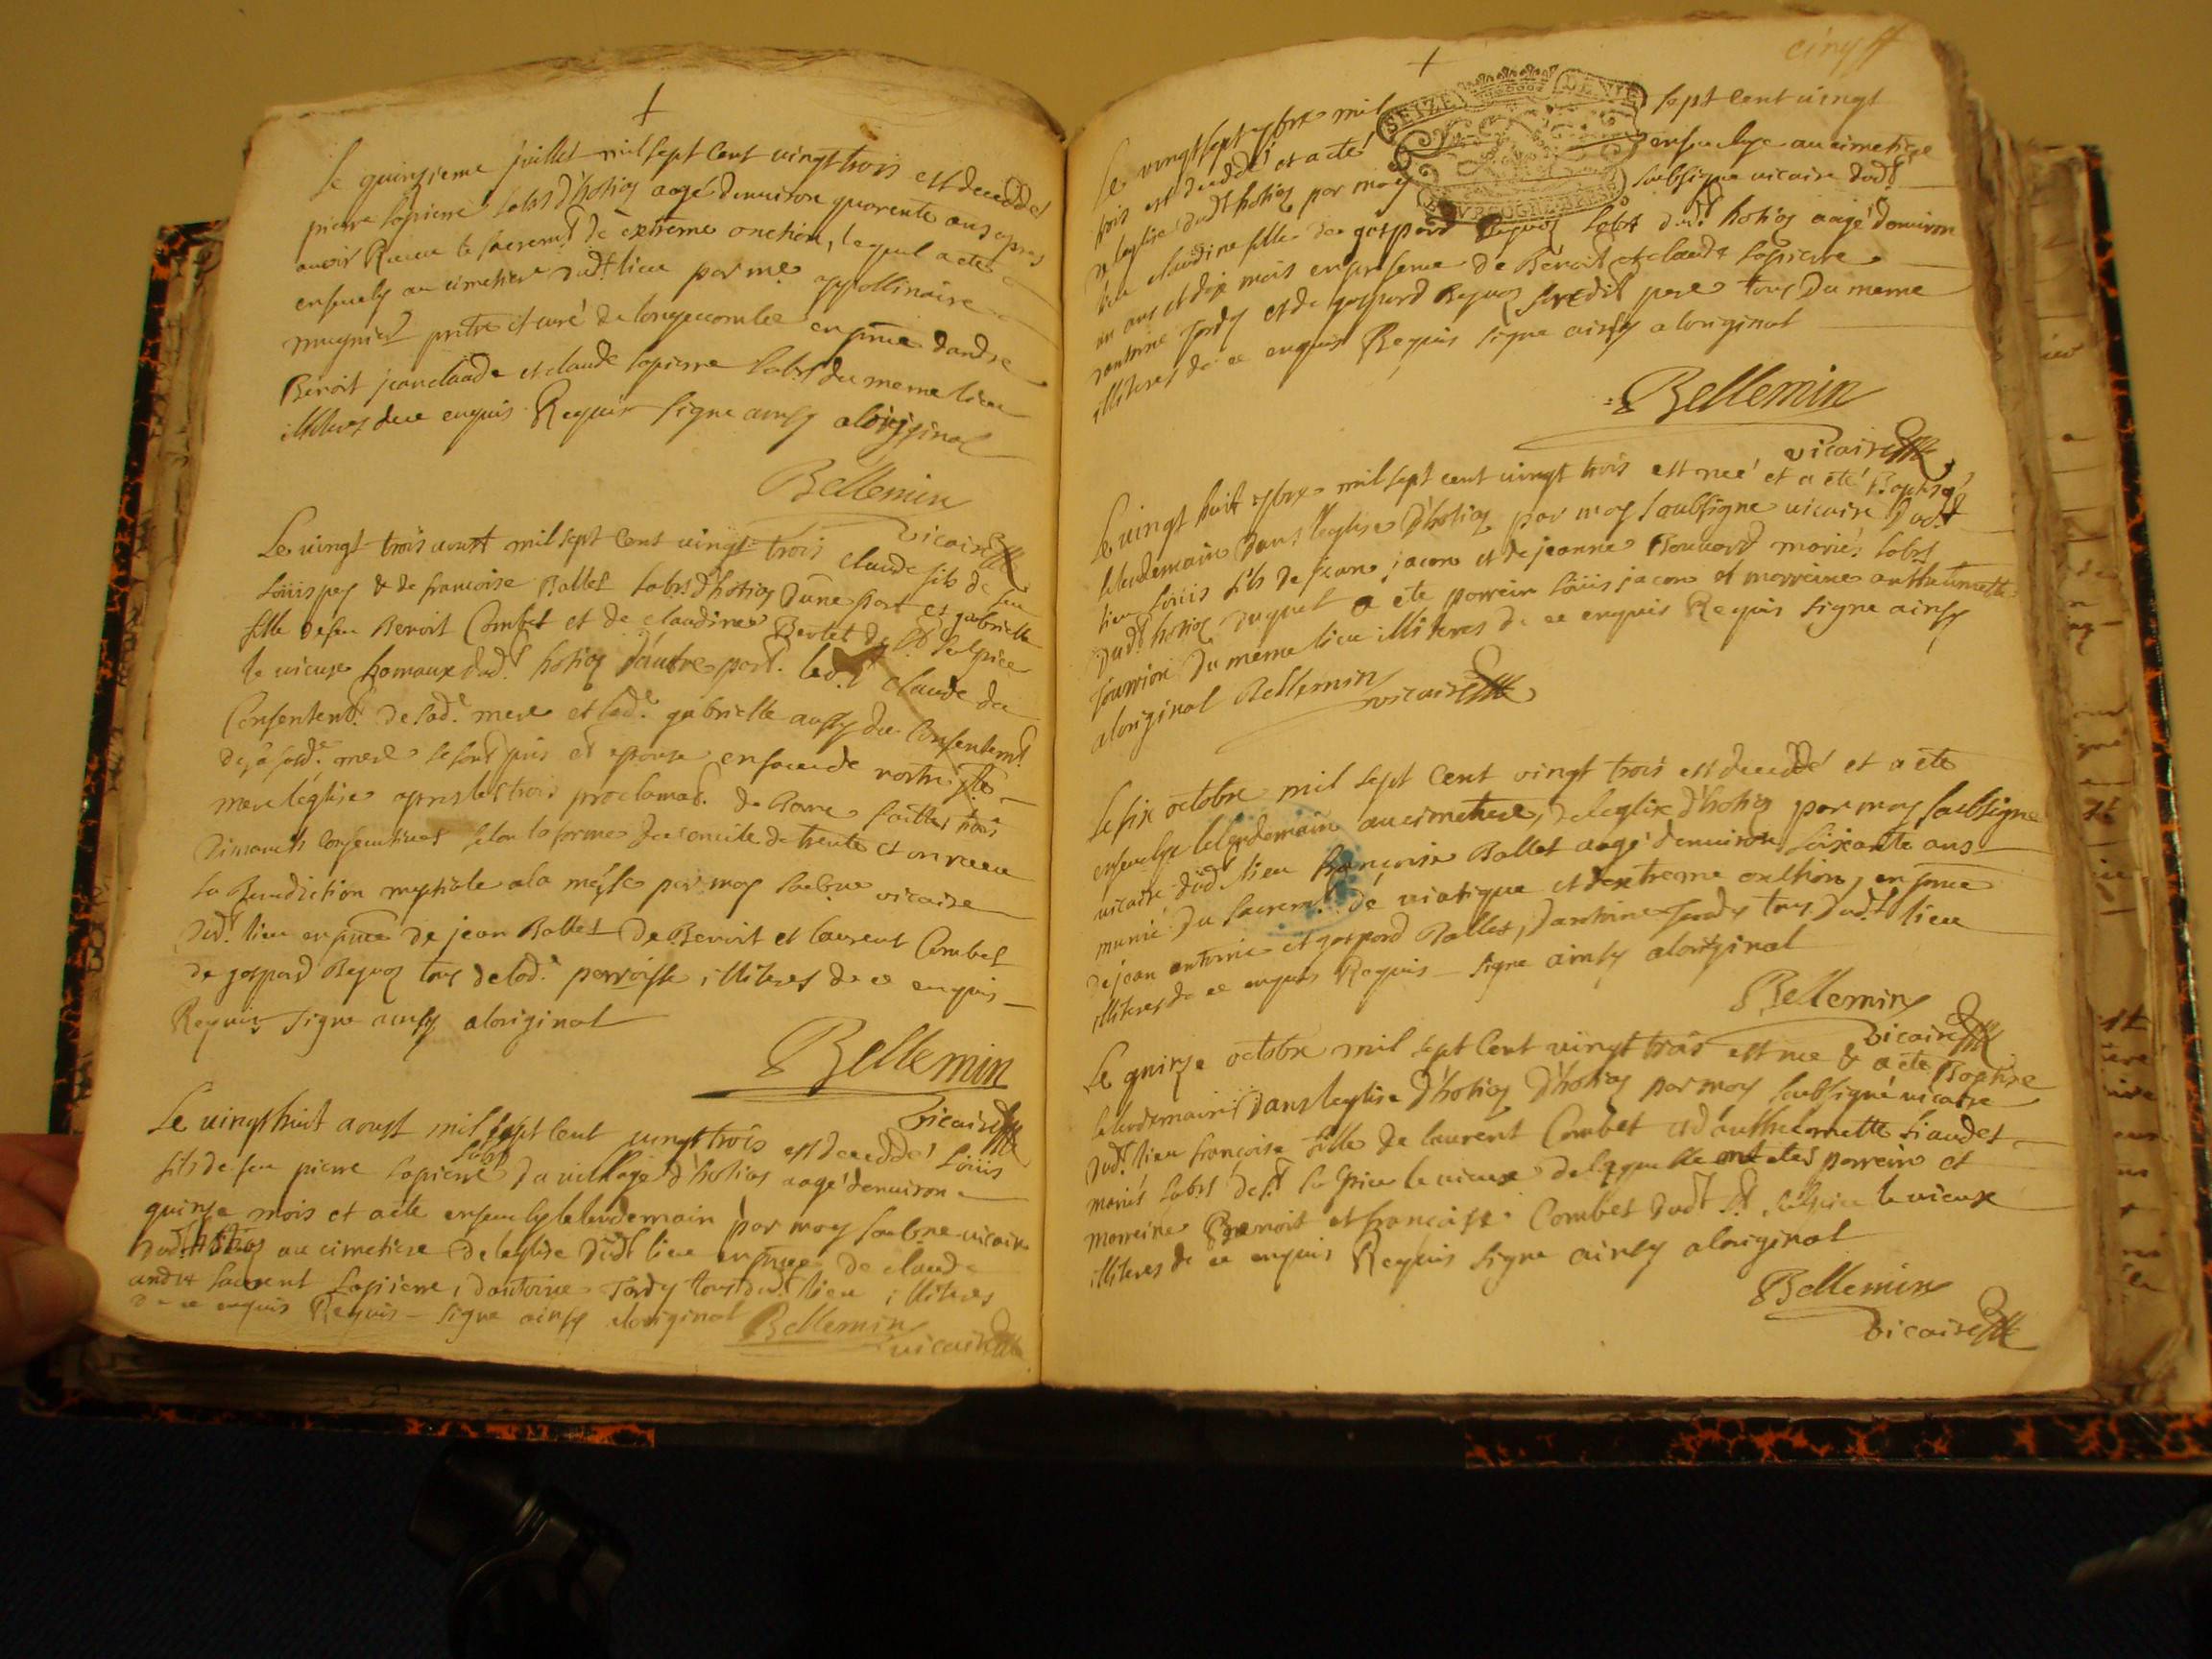 Le quinzieme juillet mil sept cent vingt trois est decedde
pierre lapierre labr d'hotioz aagé denuiron quarente ans apres
auoir Receu le sacremt de extreme onction, lequel a ete
enseuely au cimetiere dudt lieu par me appollinaire
mugnier pretre et curé de longecombe en pnce dandre
Benoit jean claude et claude lapierre labrs du meme lieu
illiteres de ce enquis Requis signe ainsy aloriginal
Bellemin
vicaire
Le vingt trois aoust mil sept cent vingt trois claude fils de feu
Loüis pey & de francoise Ballet labrs d'hotioz dune part et gabrielle
fille de feu Benoit Combet et de claudine Bertet de St Sulpice
le vieux hameaux dudt hotioz d'autre part. ledt claude du
Consentemt de lade mere et lade gabrielle aussy du Consentemt
de sade mere se sont pris et epouse en face de nostre Ste
mere leglise apres les trois proclamaõ de Banc faittes trois
dimanches consecutives selon la forme du concile de trente et on receu
la Benediction nuptiale a la messe par moy soubne vicaire
dudt lieu en pnce de jean Ballet de Benoit et laurent Combet
de gaspard Beguoz tous de lade parroisse illiteres de ce enquis
Requis signe ainsy aloriginal
Bellemin
vicaire
Le vingt huit aoust mil sept cent vingt trois est decedde Loüis
fils de feu pierre lapierre labr du village d'hotioz aagé denuiron
quinze mois et a ete enseuely le lendemain par moy soubne vicaire
dudt hotioz au cimetiere de leglise dudt lieu en pnce de claude
et laurent lapierre, dantoine Tardy tous dudt lieu illiteres
de ce enquis Requis signe ainsy aloriginal Bellemin
vicaire
Le vingt sept 7bre mil sept cent vingt
trois est decedé et a eté enseuelye au cimetiere
de leglise dudt hotioz par moy soubsigne vicaire dudt
lieu claudine fille de gaspard Beguoz labr dudt hotioz aagé denuiron
un ans et dix mois en presence de Benoit et claude lapierre
dantoine Tardy et de gaspard Beguoz susdit pere tous du meme
illiteres de ce enquis Requis signe ainsy aloriginal
SEIZE DEN
BOVRGOGNE BRES
Bellemin
vicaire
Le vingt huit 7bre mil sept cent vingt trois est neé et a ete Baptisé
le lendemain dans leglise d'hotioz par moy soubsigne vicaire dudt
lieu Loüis fils de jean jacon et de jeanne Bouuard mariés labrs
dudt hotioz duquel a ete parrein Loüis jacon et marreine anthelmette
du meme lieu illiteres de ce enquis Requis signe ainsy
aloriginal Bellemin
vicaire
Le six octobre mil sept cent vingt trois est deceddé et a ete
enseuelye le lendemain au cimetiere de leglise d'hotioz par moy soubsigne
vicaire dudt lieu francoise Ballet aagé denuiron soixante ans
munie du sacremt de viatique et dextreme onction, en pnce
de jean antoine et gaspard Ballet, dantoine Tardy tous dudt lieu
illiteres de ce enquis Requis signe ainsy aloriginal
Bellemin
vicaire
Le quinze octobre mil sept cent vingt trois est nee & a ete Baptise
le lendemain dans leglise d'hotioz d'hotioz par moy soubsigné vicaire
dudt lieu françoise fille de laurent Combet et d'anthelmette Liaudet
mariés labrs de St Sulpice le vieux de laquelle ont etes parrein et
marreine Benoit et françoise Combet dudt St Sulpice le vieux
illiteres de ce enquis Requis signe ainsy aloriginal
Bellemin
vicaire